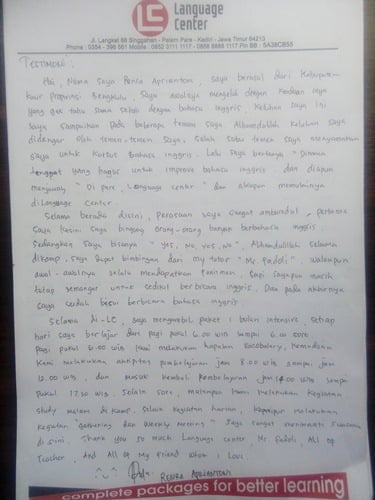 Language
Center
LC
Jl. Langkat 88 Singgahan - Palem Pare - Kediri - Jawa Timur 64213
Phone : 0354 - 398 561 Mobile : 0852 3111 1117 - 0856 8888 1117 Pin BB : 5A38CB55
TESTIMONI :
Hai, Nama saya Renra Aprianton, saya berasal dari Kabupaten
kaur propinsi Bengkulu. Saya awalnya mengeluh dengan keadaan saya
yang gak tahu sama sekali dengan bahasa inggris. Keluhan saya ini
saya sampaikan pada beberapa teman saya. Alhamdulillah keluhan saya
didengar oleh teman-teman saya, salah satu teman saya menyarankan
saya untuk kursus bahasa inggris. Lalu saya bertanya "Dimana
tempat yang bagus untuk improve bahasa inggris dan diapun
menjawab, "Di pare, Language center" dan akupun memulainya
di Language Center.
Selama berada disini, perasaan saya sangat amburadul, pertama
saya kesini saya bingung orang-orang banyak berbahasa inggris
sedangkan saya bisanya "yes, No, yes, No". Alhamdulillah selama
di kamp, saya dapat bimbingan dari my tutor "Mr. Fadoli", walaupun
awal-awalnya selalu mendapatkan funismen, tapi sayapun masih
tetap semangat untuk sedikit berbicara inggris. Dan pada akhirnya
saya sudah bisa berbicara bahasa inggris
Selama di-LC, saya mengambil paket 1 bulan intensive, setiap
hari saya belajar dari pagi pukul 6.00 wib sampai 6.00 sore
pagi pukul 6.00 wib kami melakukan hapalan vocabulary, kemudian
kami melakukan aktifitas pembelajaran jam 8.00 wib sampai jam
12.00 wib, dan masuk kembali pembelajaran jam 14.00 wib sampai
pukul 17.30 wib. Selain sore, malampun kami melakukan kegiatan
study malam di kamp. Selain kegiatan harian, kamipun melakukan
kegiatan "gathering dan Weekly Meeting" saya sangat menikmati suasana
disini. Thank you so much Language center, Mr Fadoli, All of
Teacher, And All of my Friend whom I Love.
complete packages for better learning